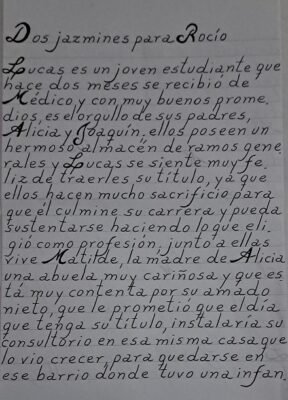 Dos jazmines para Rocío
Lucas es un joven estudiante que
hace dos meses se recibió de
Médico, y con muy buenos prome_
dios, es el orgullo de sus padres,
Alicia y Joaquín, ellos poseen un
hermoso almacén de ramos gene_
rales y Lucas se siente muy fe_
liz de traerles su título, ya que
ellos hacen mucho sacrificio para
que él culmine su carrera y pueda
sustentarse haciendo lo que eli_
gió como profesión, junto a ellas
vive Matilde, la madre de Alicia
una abuela muy cariñosa y que es_
tá muy contenta por su amado
nieto, que le prometió que el día
que tenga su título, instalaría su
consultorio en esa misma casa que
lo vio crecer, para quedarse en
ese barrio donde tuvo una infan_